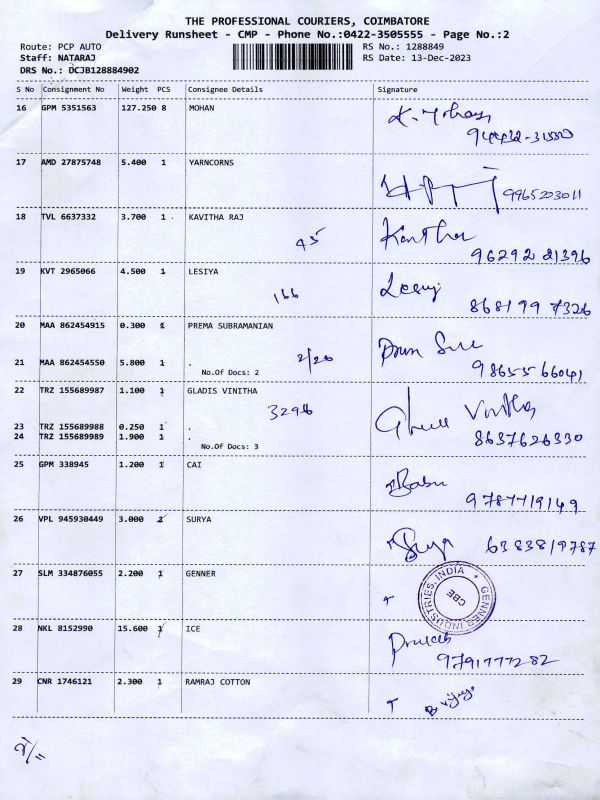 THE PROFESSIONAL COURIERS, COIMBATORE
Delivery Runsheet - CMP - Phone No.:0422-3505555 - Page No.:2
Route: PCP AUTO RS No.: 1288849
Staff: NATARAJ RS Date: 13-Dec-2023
DRS No.: DCJB128884902
S No Consignment No Weight PCS Consignee Details Signature
16 GPM 5351563 127.250 8 MOHAN K. Mohan
17 AMD 27875748 5.400 1 YARNCORNS
9965203011
18 TVL 6637332 3.700 1 KAVITHA RAJ
45
96292 21396
19 KVT 2965066 4.500 1 LESIYA
166
868199 7326
20 MAA 862454915 0.300 1 PREMA SUBRAMANIAN
2/20
21 MAA 862454550 5.800 1 .
No.Of Docs: 2
98655 66041
22 TRZ 155689987 1.100 1 GLADIS VINITHA
3296
23 TRZ 155689988 0.250 1 .
24 TRZ 155689989 1.900 1 .
No.Of Docs: 3
8637626330
25 GPM 338945 1.200 1 CAI
Babu
9787719149
26 VPL 945930449 3.000 2 SURYA
Surya 6383819787
27 SLM 334876055 2.200 1 GENNER
GENNER INDUSTRIES, INDIA
CBE
28 NKL 8152990 15.600 1 ICE
9791777282
29 CNR 1746121 2.300 1 RAMRAJ COTTON